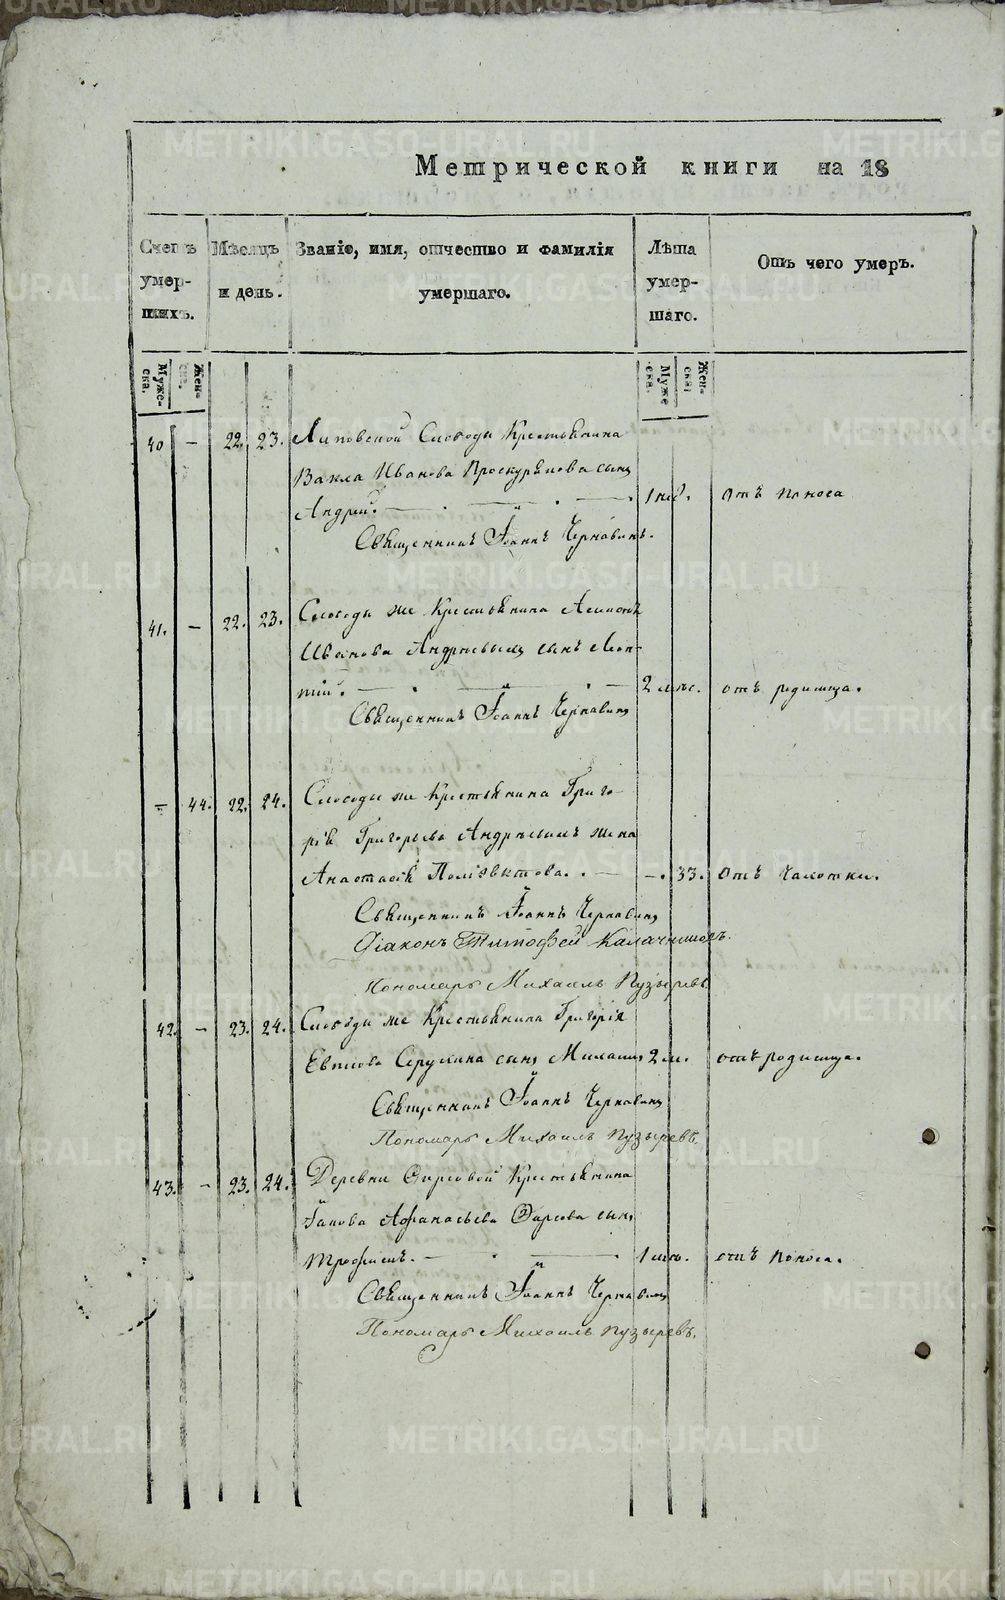 Метрической книги на 18
Счетъ умершихъ.
Мѣсяцъ и день.
Званіе, имя, отчество и фамилія умершаго.
Лѣта умершаго.
Отъ чего умеръ.
Мужеска.
Женска.
Мужеска.
Женска.
40 — 22. 23. Липовской Слободы Крестьянина
Вакла Иванова Проскурякова сынъ
Андрей. 1 нед. отъ поноса
Священникъ Іоаннъ Чернавинъ.
41. — 22. 23. Слободы же Крестьянина
Иванова Андреевыхъ сынъ Леон-
тій. 2 мѣс. отъ родимца.
Священникъ Іоаннъ Чернавинъ
— 44. 22. 24. Слободы же Крестьянина Григо-
рія Григорьева Андреевыхъ жена
Анастасія Поліевктова. —. 33. отъ чахотки.
Священникъ Іоаннъ Чернавинъ
Діаконъ Тимофей Калачниковъ.
Пономарь Михаилъ Пузыревъ
42. — 23. 24. Слободы же Крестьянина Григорія
сынъ 2 м. отъ родимца.
Священникъ Іоаннъ Чернавинъ
Пономарь Михаилъ Пузыревъ.
43. — 23. 24. Деревни Фирсовой Крестьянина
Іакова Афанасьева Фирсова сынъ
Трофимъ. 1 отъ поноса.
Священникъ Іоаннъ Чернавинъ
Пономарь Михаилъ Пузыревъ.
METRIKI.GASO-URAL.RU